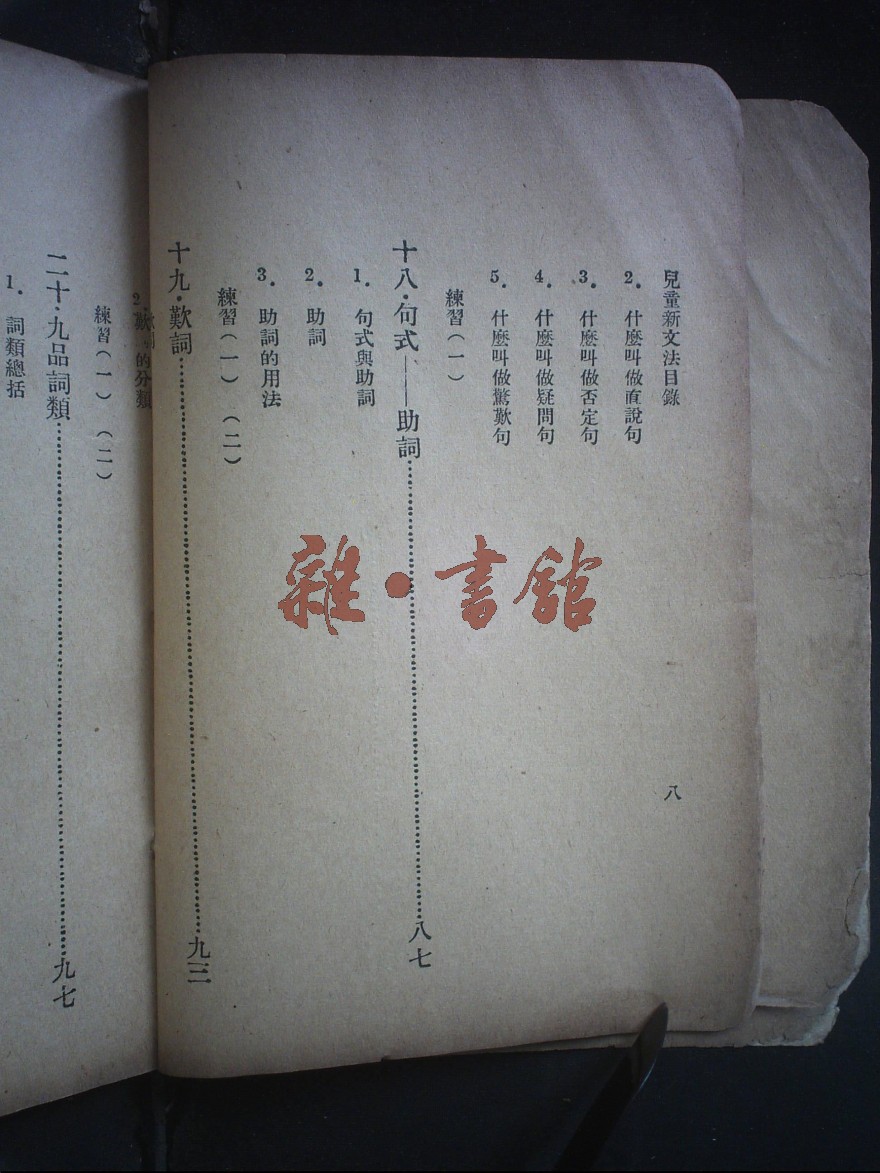 兒童新文法目錄
八
2．什麼叫做直說句
3．什麼叫做否定句
4．什麼叫做疑問句
5．什麼叫做驚歎句
練習(一)
十八·句式——助詞……八七
1．句式與助詞
2．助詞
3．助詞的用法
練習(一)(二)
十九·歎詞……九三
2．歎詞的分類
練習(一)(二)
二十·九品詞類……九七
1．詞類總括
雜·書館